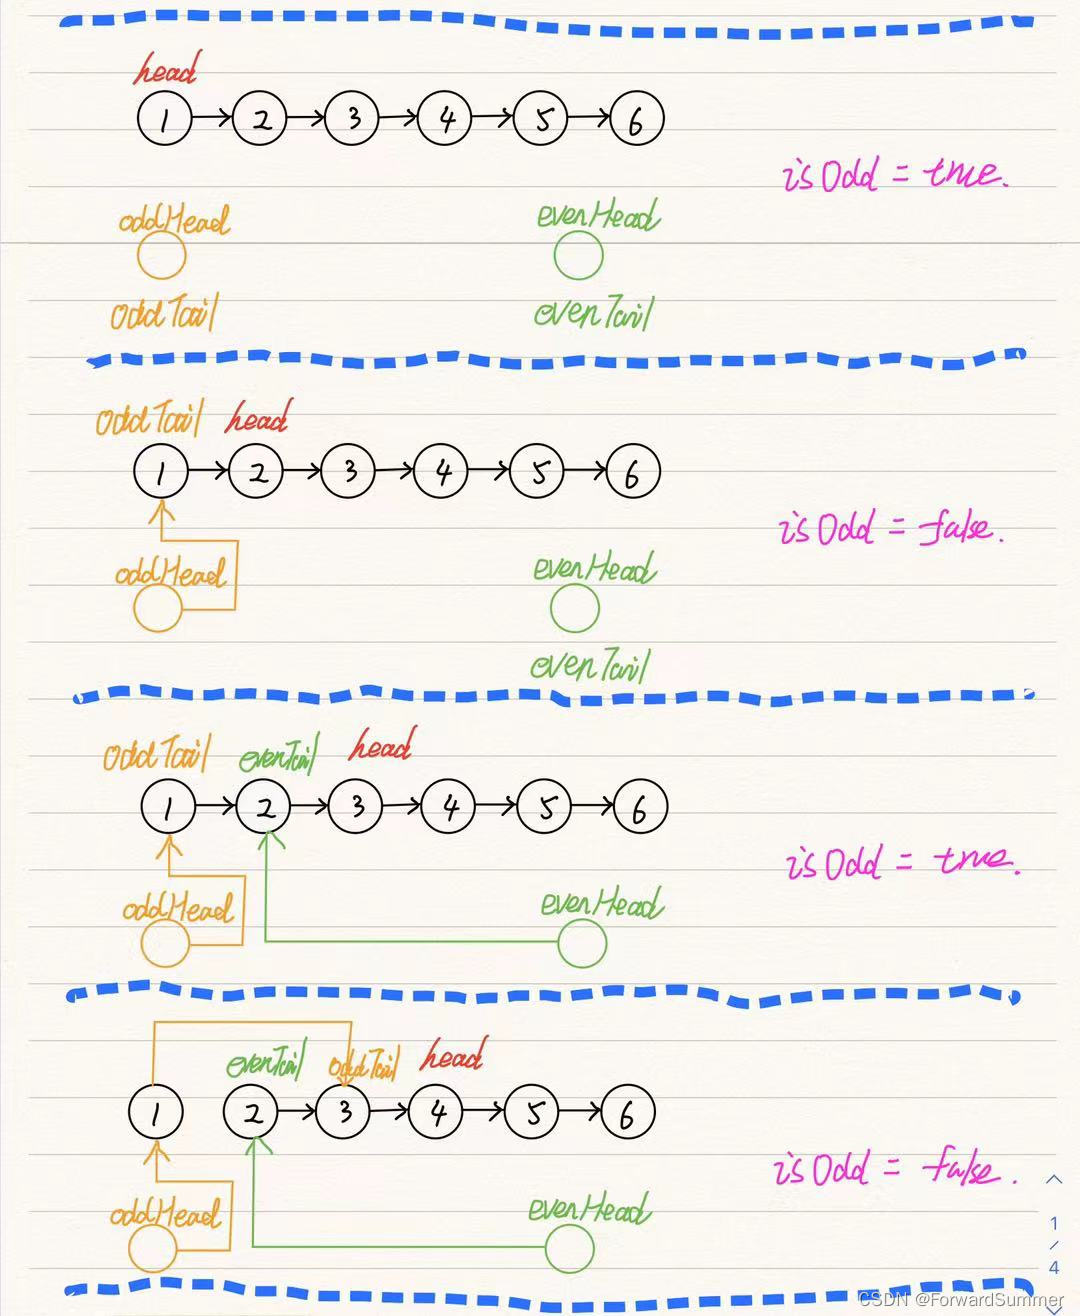 head
1 2 3 4 5 6
isOdd = true.
oddHead evenHead
oddTail evenTail
oddTail head
1 2 3 4 5 6
isOdd = false.
oddHead evenHead
evenTail
oddTail evenTail head
1 2 3 4 5 6
isOdd = true.
oddHead evenHead
evenTail oddTail head
1 2 3 4 5 6
isOdd = false.
oddHead evenHead
1
/
4
CSDN @ForwardSummer